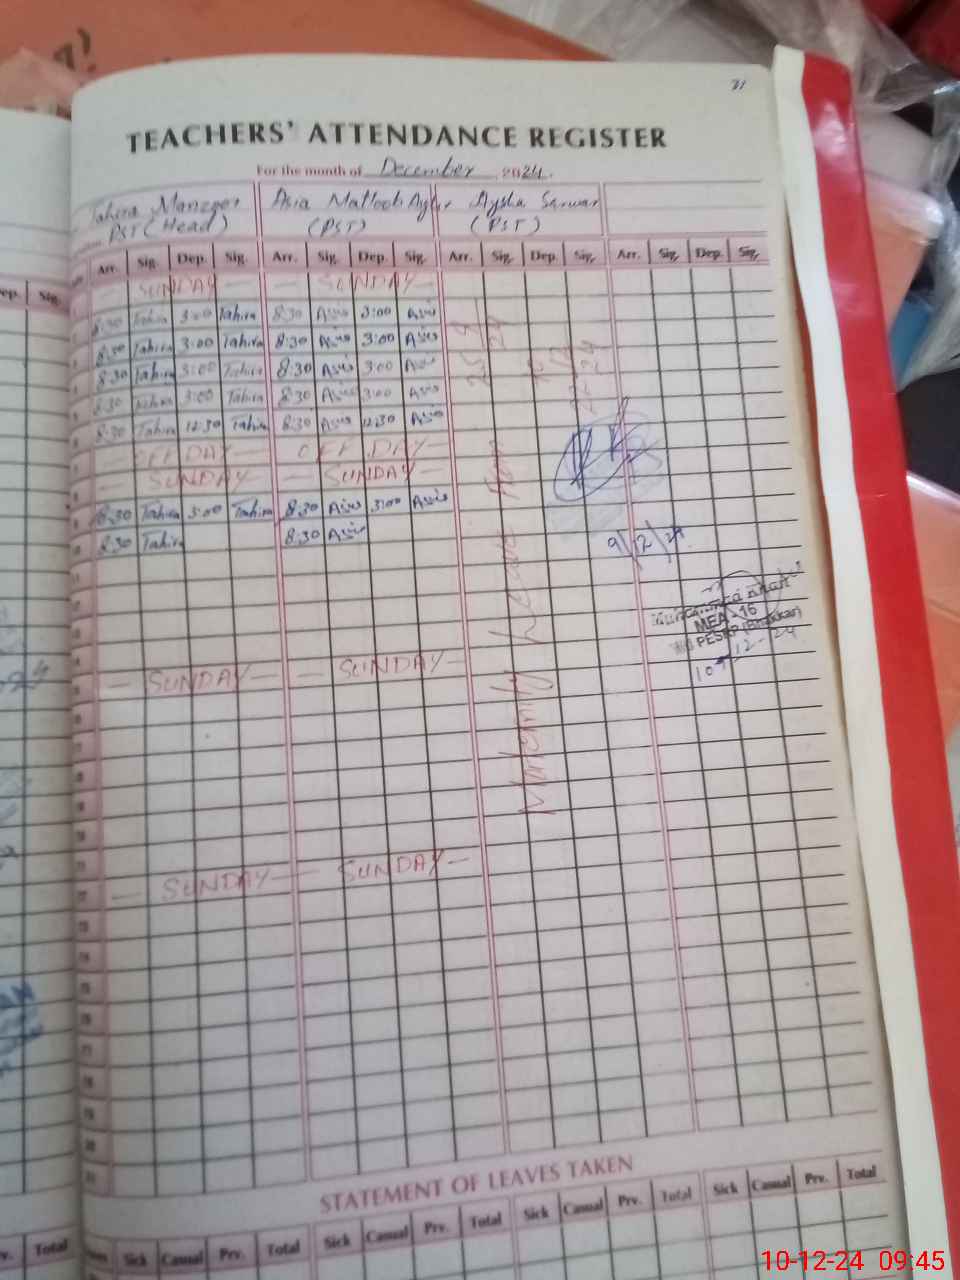 31
TEACHERS' ATTENDANCE REGISTER
For the month of December 2024.
Tahira Manzoor Asia Matloob Aysha Sarwar
PST (Head) (PST) (PST)
Arr. Sig. Dep. Sig. Arr. Sig. Dep. Sig. Arr. Sig. Dep. Sig. Arr. Sig. Dep. Sig.
— SUNDAY — — SUNDAY —
8:30 Tahira 3:00 Tahira 8:30 Asia 3:00 Asia
8:30 Tahira 3:00 Tahira 8:30 Asia 3:00 Asia
8:30 Tahira 3:00 Tahira 8:30 Asia 3:00 Asia
8:30 Tahira 3:00 Tahira 8:30 Asia 3:00 Asia
8:30 Tahira 12:30 Tahira 8:30 Asia 12:30 Asia
— OFF DAY — OFF DAY —
— SUNDAY — — SUNDAY —
8:30 Tahira 3:00 Tahira 8:30 Asia 3:00 Asia
8:30 Tahira 8:30 Asia
Maternity Leave From
9/12/24
MEA-16
PESRP (Bhakkar)
10-12-24
— SUNDAY — — SUNDAY —
— SUNDAY — — SUNDAY —
STATEMENT OF LEAVES TAKEN
Sick Casual Prv. Total Sick Casual Prv. Total Sick Casual Prv. Total Sick Casual Prv. Total
Dep. Sig.
Prv. Total
10-12-24 09:45